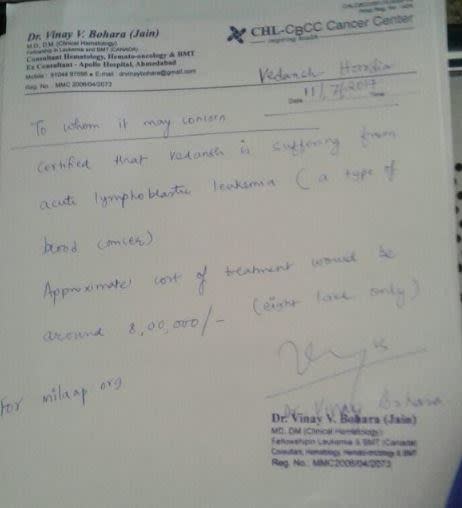 Dr. Vinay V. Bohara (Jain)
M.D., DM (Clinical Hematology)
Fellowship in Leukemia and BMT (CANADA)
Consultant Hematology, Hemato-oncology & BMT
Ex Consultant - Apollo Hospital, Ahmedabad
Mobile : 91044 97698 • E-mail : drvinaybohara@gmail.com
Reg. No. : MMC 2006/04/2073
CHL-CBCC Cancer Center
inspiring health
Vedansh
Date 11/7/2017 Time
To whom it may concern
Certified that Vedansh is suffering from
acute lymphoblastic leukemia (a type of
blood cancer)
Approximate cost of treatment would be
around 8,00,000/- (eight lakh only)
For milaap org
Dr. Vinay Bohara
Dr. Vinay V. Bohara (Jain)
MD, DM (Clinical Hematology)
Fellowship Leukemia & BMT (Canada)
Consultant, Hematology, Hemato-oncology & BMT
Reg. No.: MMC2006/04/2073